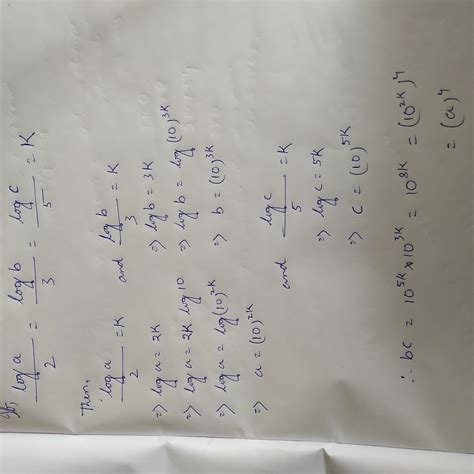 If, log a / 2 = log b / 3 = log c / 5 = K
Then,
log a / 2 = K and log b / 3 = K
⇒ log a = 2K ⇒ log b = 3K
⇒ log a = 2K log 10 ⇒ log b = log (10)^3K
⇒ log a = log (10)^2K ⇒ b = (10)^3K
⇒ a = (10)^2K
and log c / 5 = K
⇒ log c = 5K
⇒ c = (10)^5K
∴ bc = 10^5K × 10^3K = 10^8K = (10^2K)^4
= (a)^4